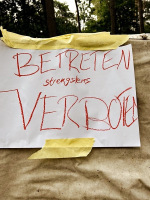 BETRETEN
strengstens
VERBOTEN